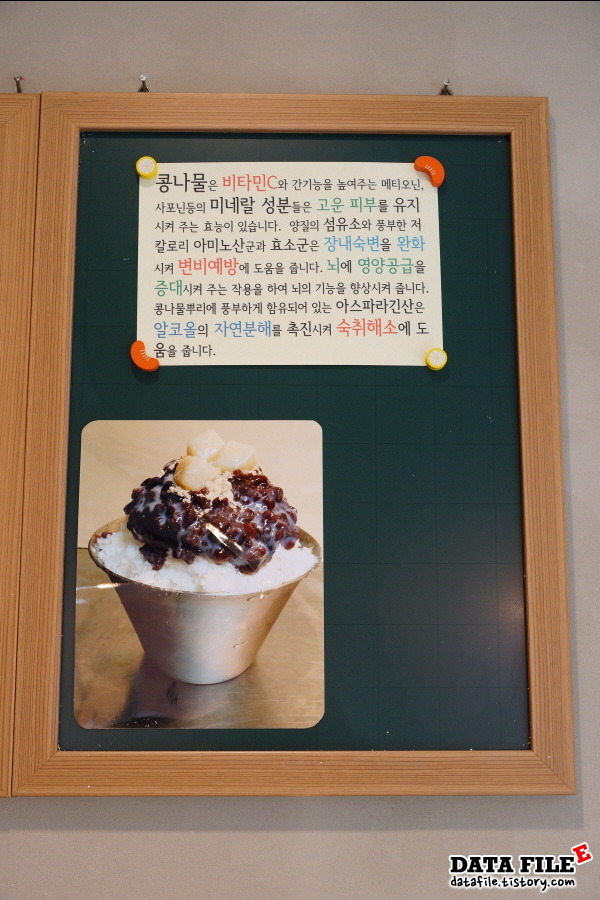 콩나물은 비타민C와 간기능을 높여주는 메티오닌,
사포닌등의 미네랄 성분들은 고운 피부를 유지
시켜 주는 효능이 있습니다. 양질의 섬유소와 풍부한 저
칼로리 아미노산군과 효소군은 장내숙변을 완화
시켜 변비예방에 도움을 줍니다. 뇌에 영양공급을
증대시켜 주는 작용을 하여 뇌의 기능을 향상시켜 줍니다.
콩나물뿌리에 풍부하게 함유되어 있는 아스파라긴산은
알코올의 자연분해를 촉진시켜 숙취해소에 도
움을 줍니다.
DATA FILE E
datafile.tistory.com